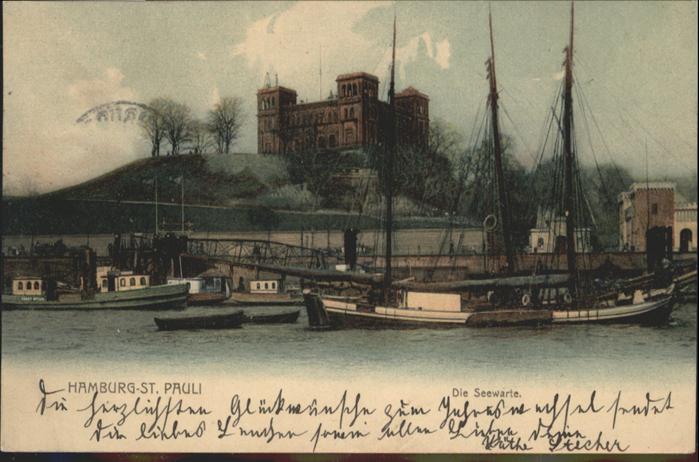 HAMBURG-ST. PAULI
Die Seewarte.
Die herzlichsten Glückwünsche zum Jahreswechsel sendet
Dir liebes sowie allen Lieben Deine
Käthe Stecher